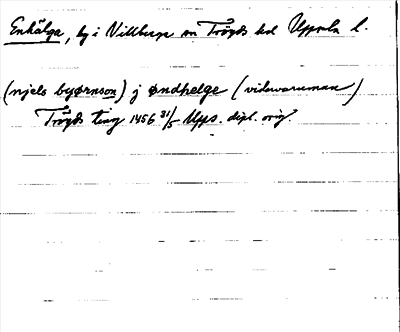 Enhälga, by i Villberga sn Trögds hd Uppsala l.
(njels byørnson) j øndhelge (vidervaruman)
Trögds ting 1456 31/5 Upps. dipl. orig.